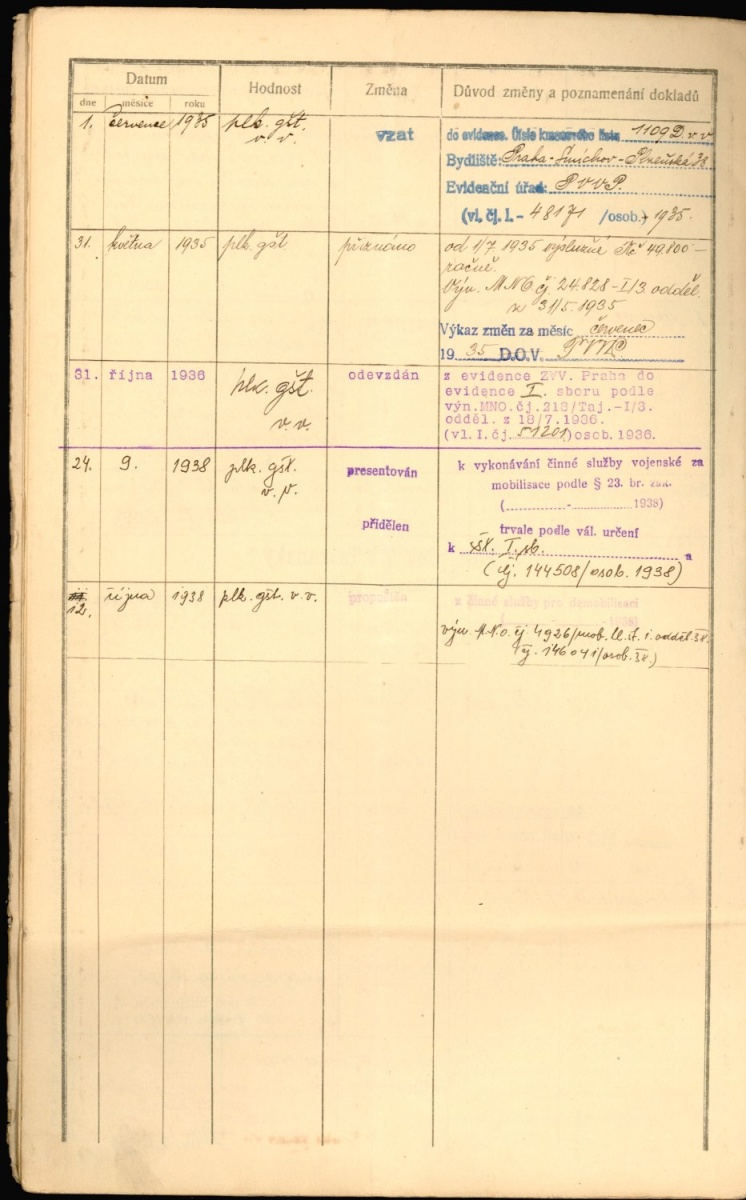 Datum
Hodnost
Změna
Důvod změny a poznamenání dokladů
dne měsíce roku
1. července 1935 plk. gšt. v. v. vzat
do evidence. Číslo kmenového listu 1109 D. v v
Bydliště: Praha-Smíchov-Plzeňská 38
Evidenční úřad: PVVP.
(vl. čj. I. - 48171 /osob.) 1935.
31. května 1935 plk. gšt přiznáno
od 1/7 1935 výslužné Kč 49.800 -
ročně.
Výn. MNO čj 24.828-I/3. odděl.
z 31/5. 1935
Výkaz změn za měsíc červenec
1935 D.O.V.
31. října 1936 plk. gšt. v.v. odevzdán
z evidence ZVV. Praha do
evidence I. sboru podle
výn. MNO. čj. 218/Taj.-I/3.
odděl. z 18/7. 1936.
(vl. I. čj. 51201) osob. 1936.
24. 9. 1938 plk. gšt. v. v. presentován
k vykonávání činné služby vojenské za
mobilisace podle § 23. br. zák.
( - 1938)
přidělen
trvale podle vál. určení
k I. sb. a
(čj. 144508/osob. 1938)
12. října 1938 plk. gšt. v. v. propuštěn
z činné služby pro demobilisaci
- 1938)
výn. M.N.O. čj 4926/mob. hl. št. 1. odděl. 38.
čj. 146041/osob. 38.)